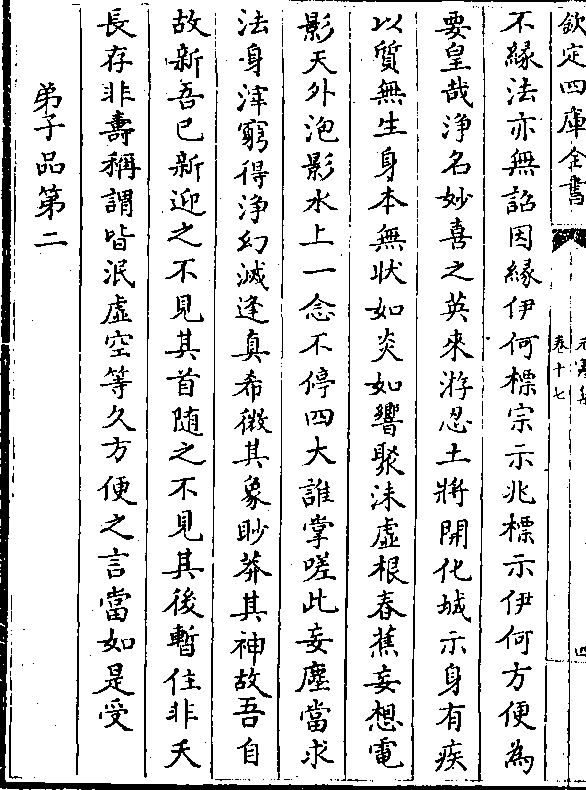 欽定四庫全書
卷十七
四
不緣法亦無詔因緣伊何標宗示兆標示伊何方便為
要皇哉淨名妙喜之英來游忍土將開化城示身有疾
以質無生身本無狀如炎如響聚沫虛根春蕉妄想電
影天外泡影水上一念不停四大誰掌嗟此妄塵當求
法身滓窮得淨幻滅逢真希微其象眇莽其神故吾自
故新吾已新迎之不見其首随之不見其後暫住非夭
長存非壽稱謂皆泯虛空等久方便之言當如是受
弟子品第二